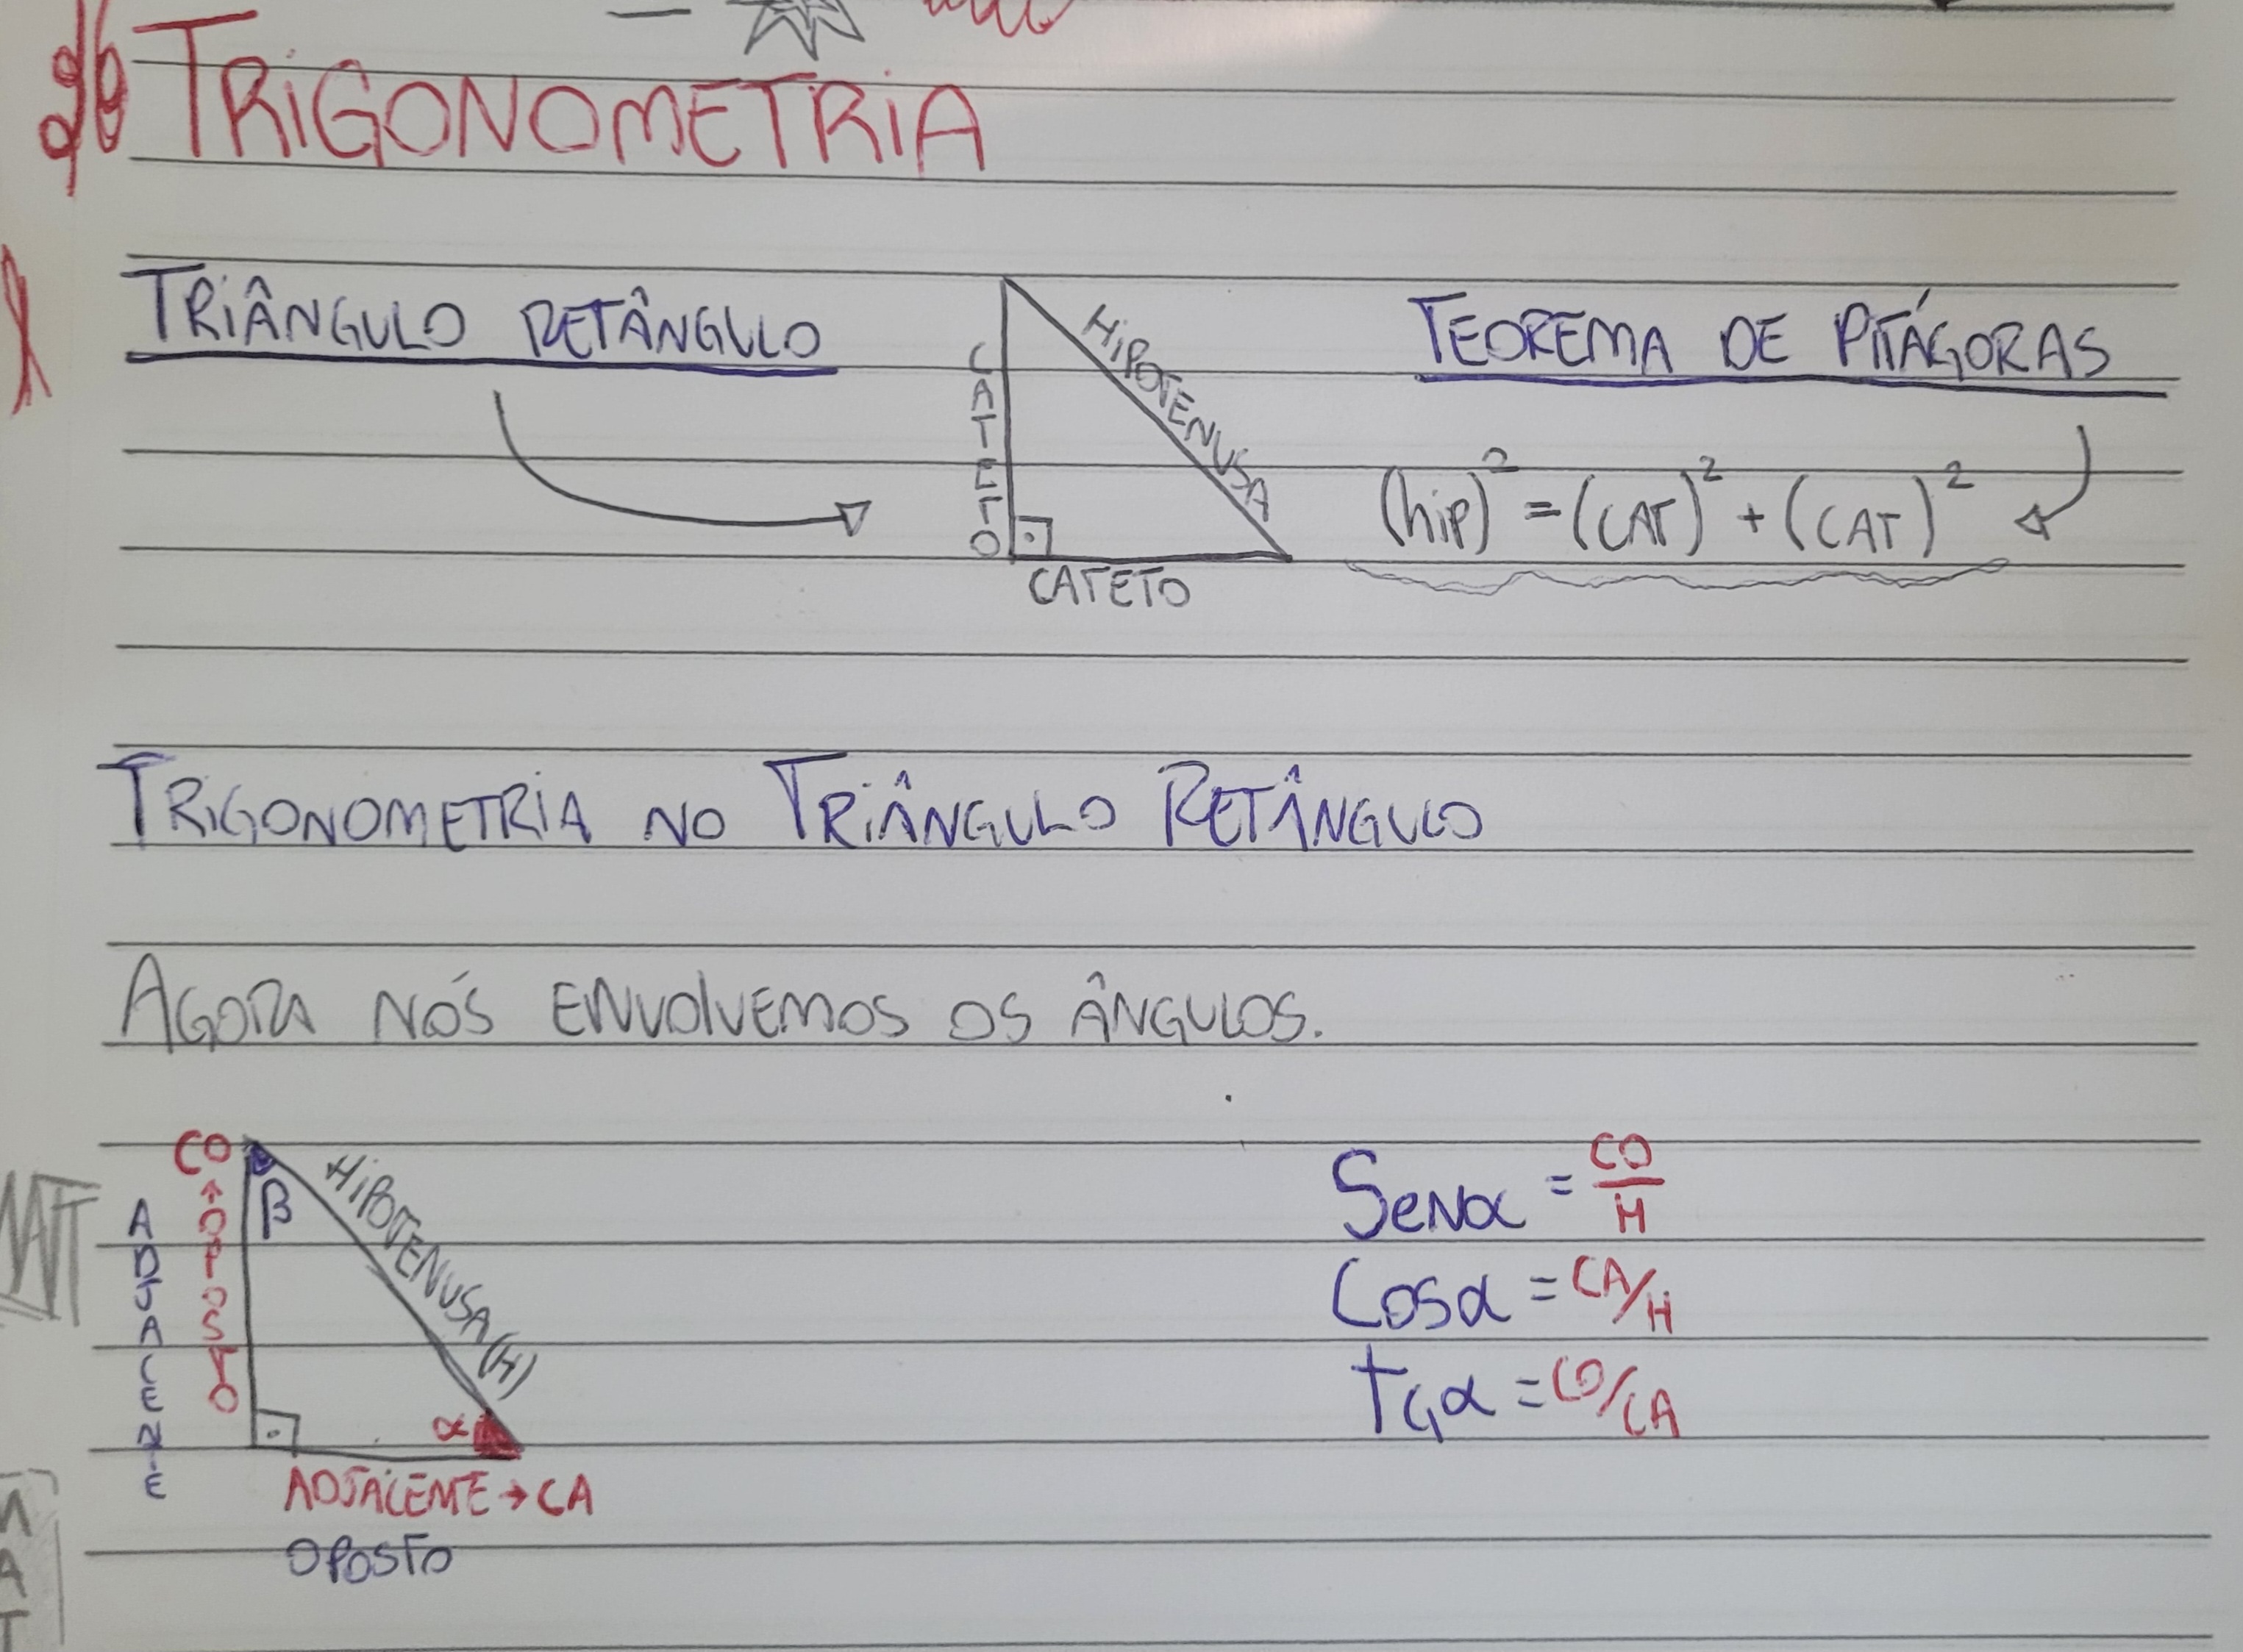 TRIGONOMETRIA
TRIÂNGULO RETÂNGULO
CATETO
HIPOTENUSA
CATETO
TEOREMA DE PITÁGORAS
(hip)² = (CAT)² + (CAT)²
TRIGONOMETRIA NO TRIÂNGULO RETÂNGULO
AGORA NÓS ENVOLVEMOS OS ÂNGULOS.
CO
↑
OPOSTO
ADJACENTE
β
HIPOTENUSA (H)
α
ADJACENTE → CA
OPOSTO
SENα = CO/H
COSα = CA/H
TGα = CO/CA